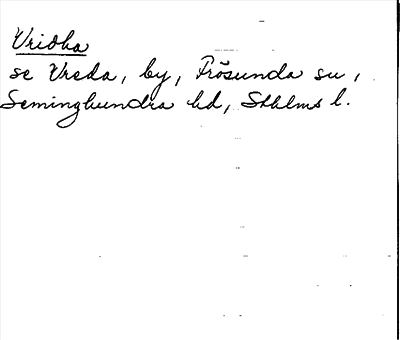 Vridha
se Vreda, by, Frösunda sn,
Seminghundra hd, Sthlms l.